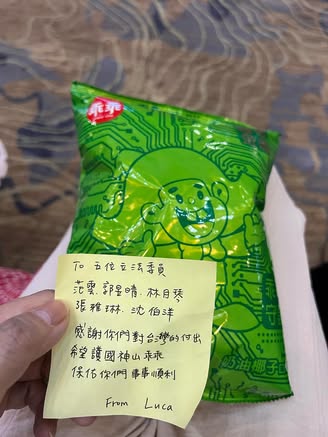 乖乖
To 五位立法委員
范雲 郭昱晴 林月琴
張雅琳 沈伯洋
感謝你們對台灣的付出
希望護國神山乖乖
保佑你們事事順利
From Luca
奶油椰子